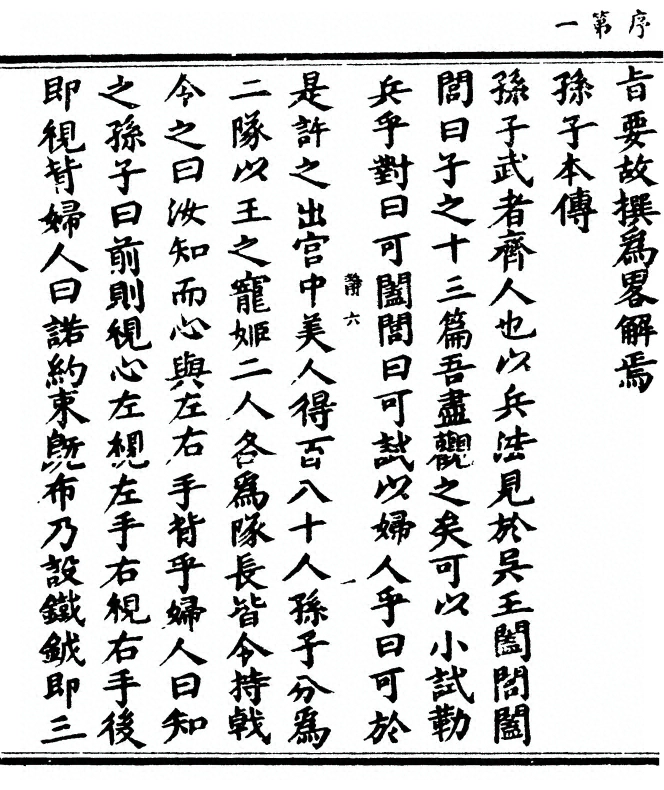 序第一
旨要故撰爲畧解焉
孫子本傳
孫子武者齊人也以兵法見於吳王闔閭闔
閭曰子之十三篇吾盡觀之矣可以小試勒
兵乎對曰可闔閭曰可試以婦人乎曰可於
靜六
是許之出宮中美人得百八十人孫子分爲
二隊以王之寵姬二人各爲隊長皆令持戟
令之曰汝知而心與左右手背乎婦人曰知
之孫子曰前則視心左視左手右視右手後
即視背婦人曰諾約束既布乃設鐵鉞即三